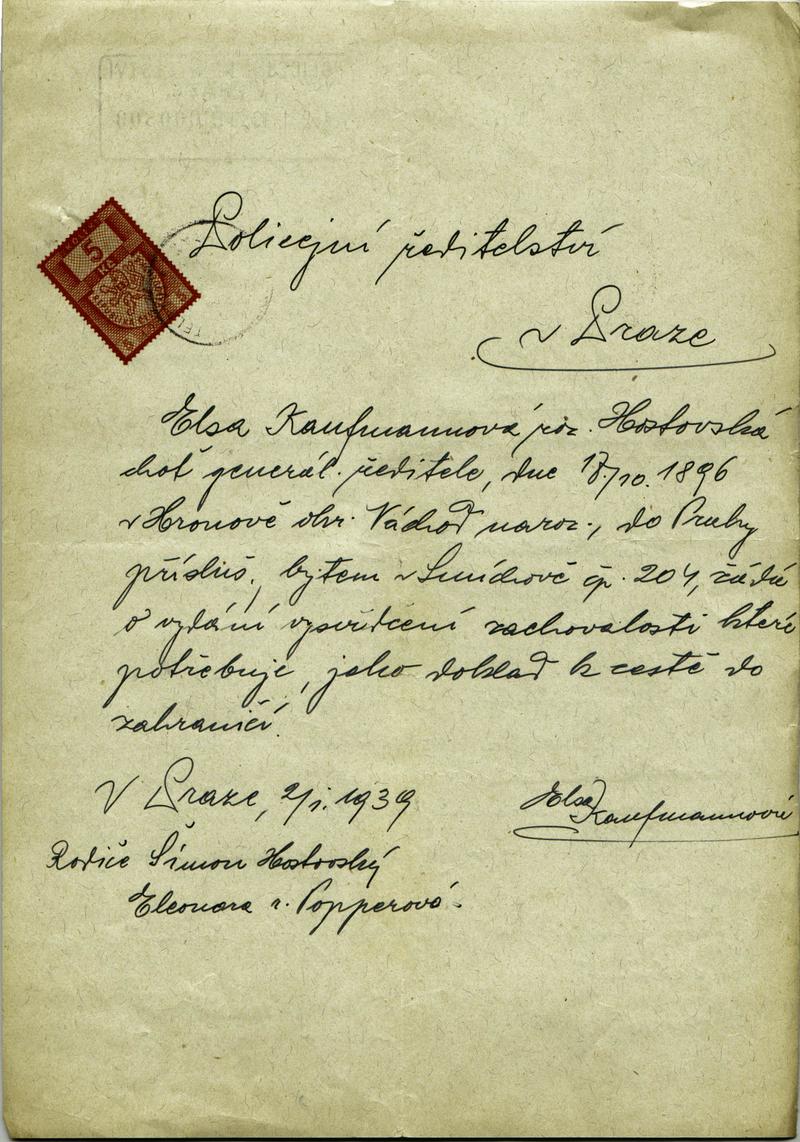 5
KČ
Policejní ředitelství
v Praze
Elsa Kaufmannová roz. Hostovská
choť generál. ředitele, dne 17/10. 1896
v Hronově okr. Náchod naroz., do Prahy
přísluš., bytem v Smíchově čp. 204, žádá
o vydání vysvědčení zachovalosti které
potřebuje, jako doklad k cestě do
zahraničí.
V Praze, 2/1. 1939
Elsa Kaufmannová
Rodiče Šimon Hostovský
Eleonora r. Popperová.